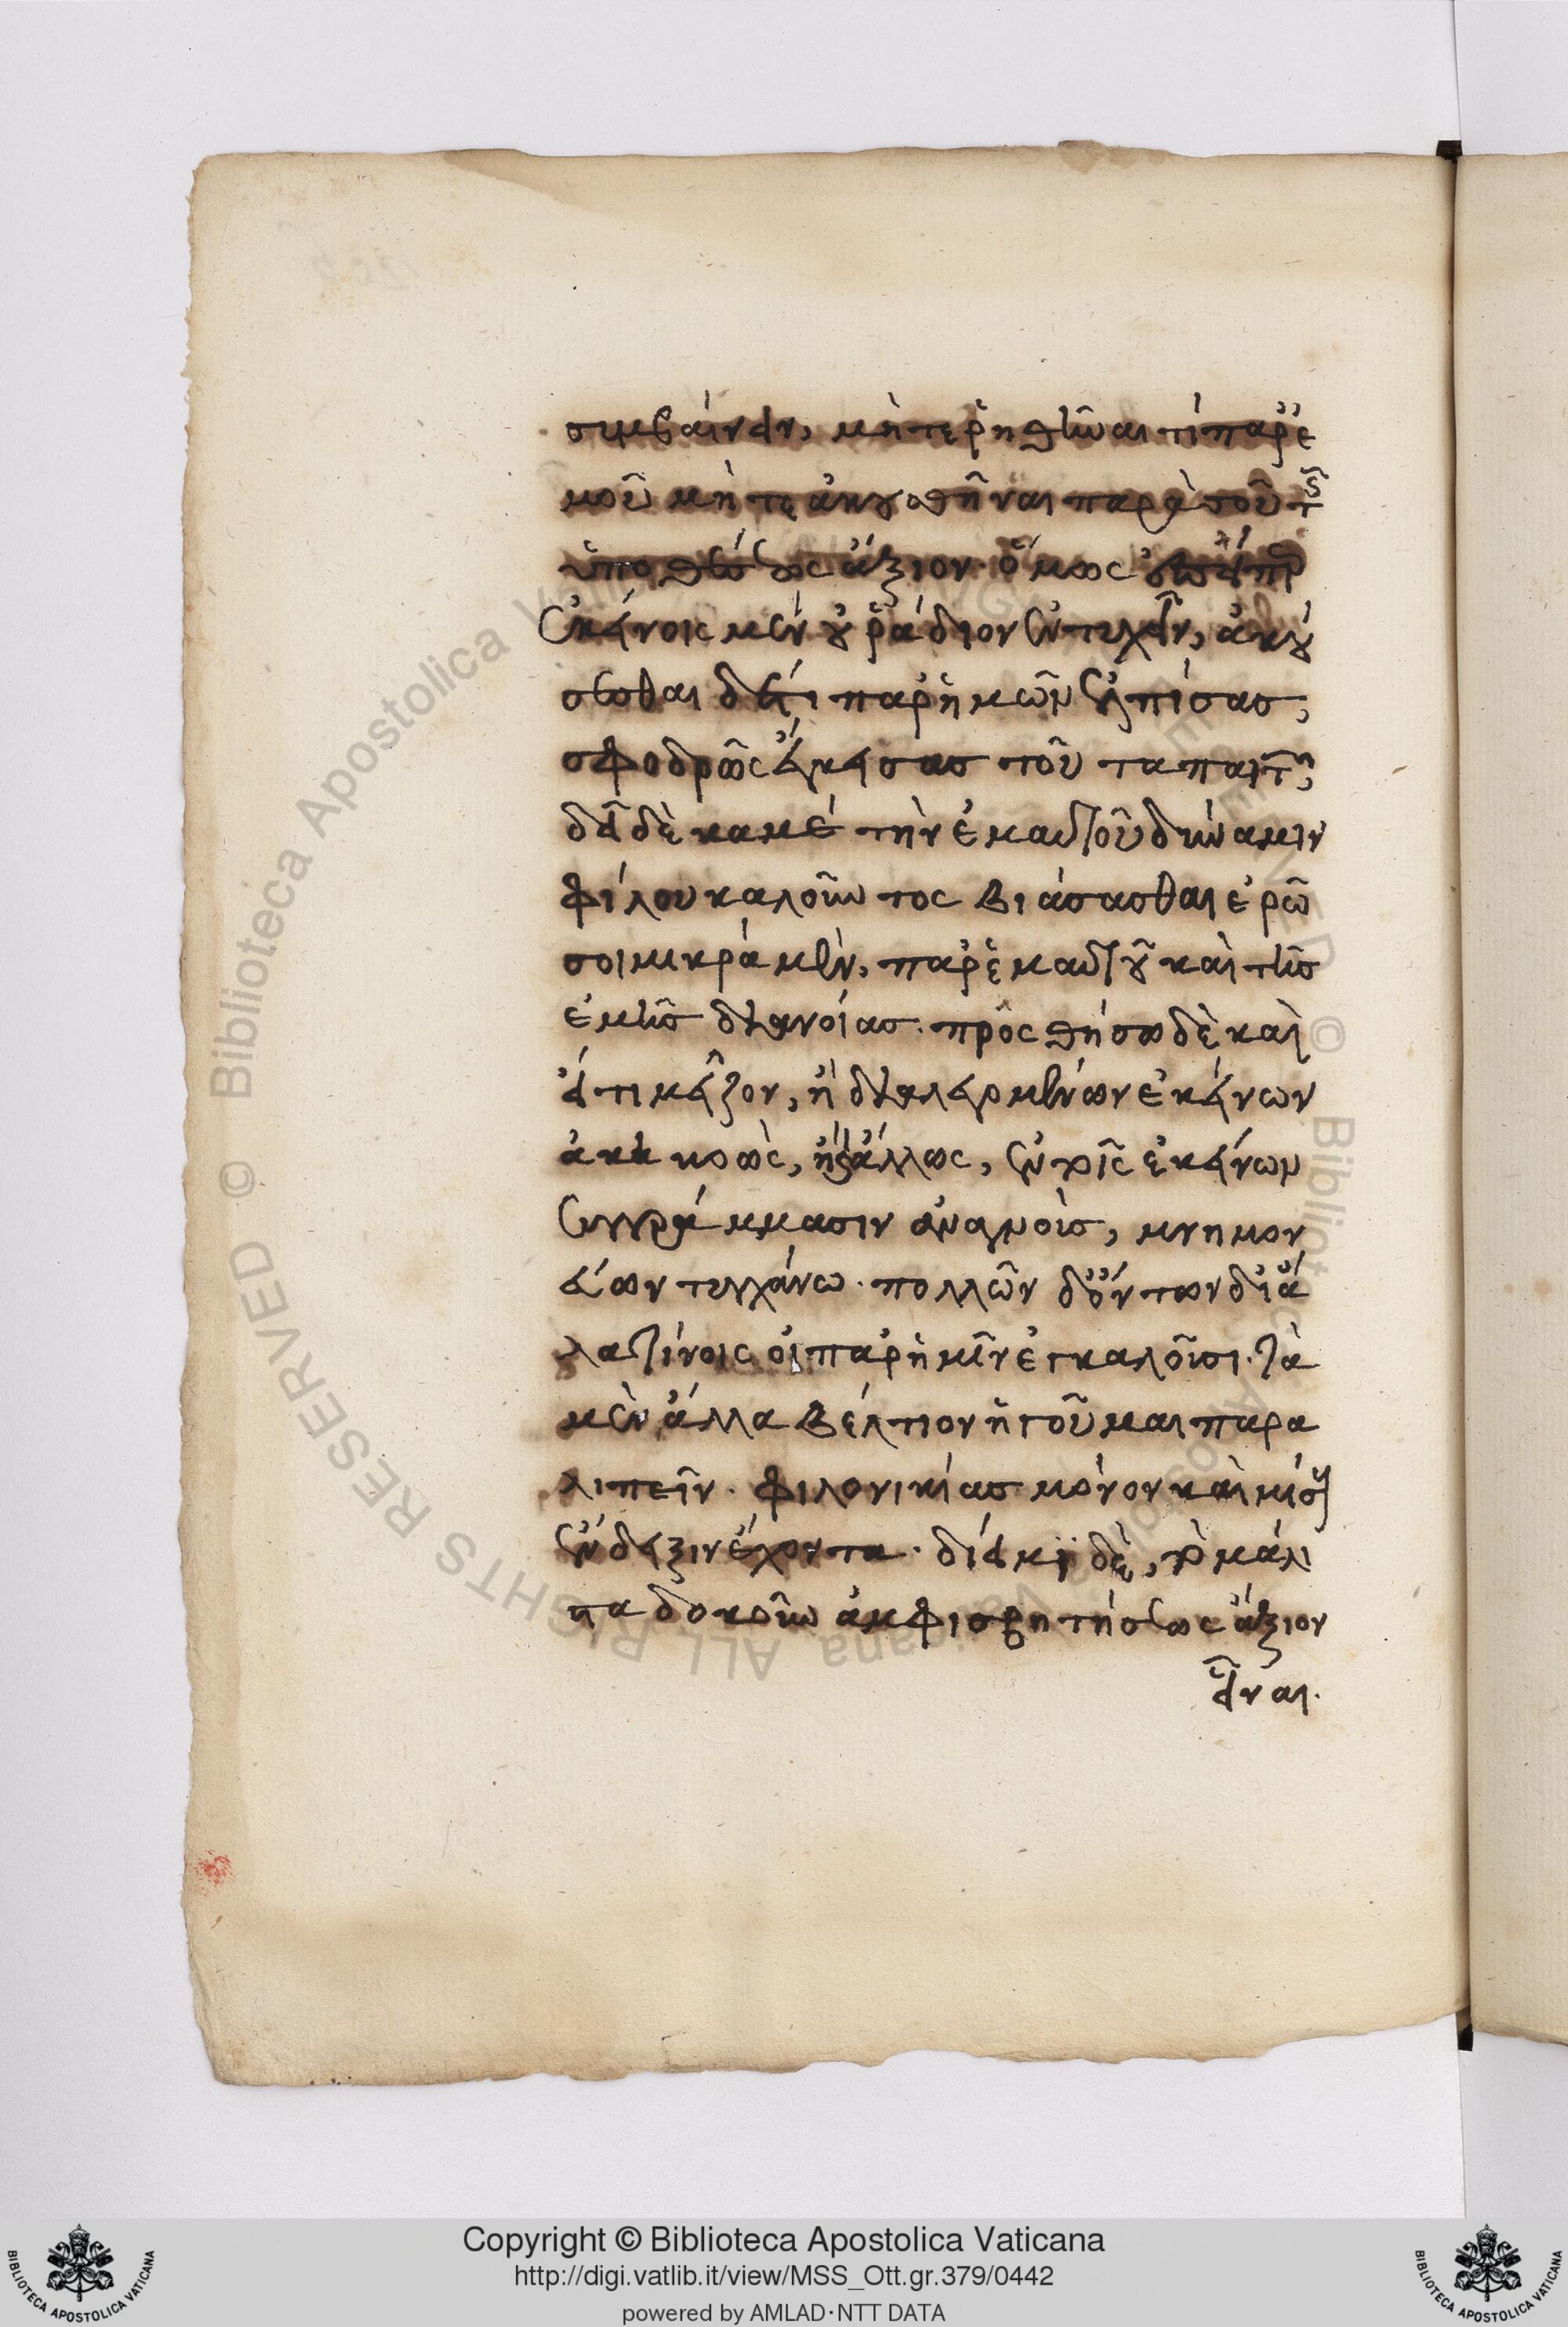 συμβαίνειν, μήτε ῥηθῆναι τί παρ' ἐ
μοῦ μήτε ἀκουσθῆναι παρὰ σοῦ τ῀ς
ὑποθέσεως ἄξιον. ὅμως
ἐκείνοις μὲν οὐ ῥάδιον ἐντυχεῖν, ἀκού
σεσθαι δέ τι παρ' ἡμῶν ἐλπίσας,
σφοδρῶς
δεῖ δὲ καμὲ τὴν ἐμαυτοῦ δύναμιν
φίλου καλοῦντος βιάσασθαι ἐρῶ
σοι μικρὰ μὲν, παρ' ἐμαυτοῦ καὶ τῆς
ἐμῆς διανοίας. προσθήσω δὲ καὶ
εἴ τι μεῖζον, ἢ διαλεγομένων ἐκείνων
ἀκηκοὼς, ἢ ἄλλως, ἐν τοῖς ἐκείνων
συγγράμμασιν ἀναγνοὺς, μνημον
εύων τυγχάνω. πολλῶν δ' ὄντων δι' ἃ
λατίνοις οἱ παρ' ἡμῖν ἐγκαλοῦσι. τὰ
μὲν ἄλλα βέλτιον ἡγοῦμαι παρα
λιπεῖν. φιλονικίας μόνον καὶ μίσους
ἔνδειξιν ἔχοντα. δι' ἐμοὶ δὲ, τὸ μάλι
στα δοκοῦν ἀμφισβητήσεως ἄξιον
εἶναι.
Copyright © Biblioteca Apostolica Vaticana
http://digi.vatlib.it/view/MSS_Ott.gr.379/0442
powered by AMLAD·NTT DATA
BIBLIOTECA APOSTOLICA VATICANA
BIBLIOTECA APOSTOLICA VATICANA